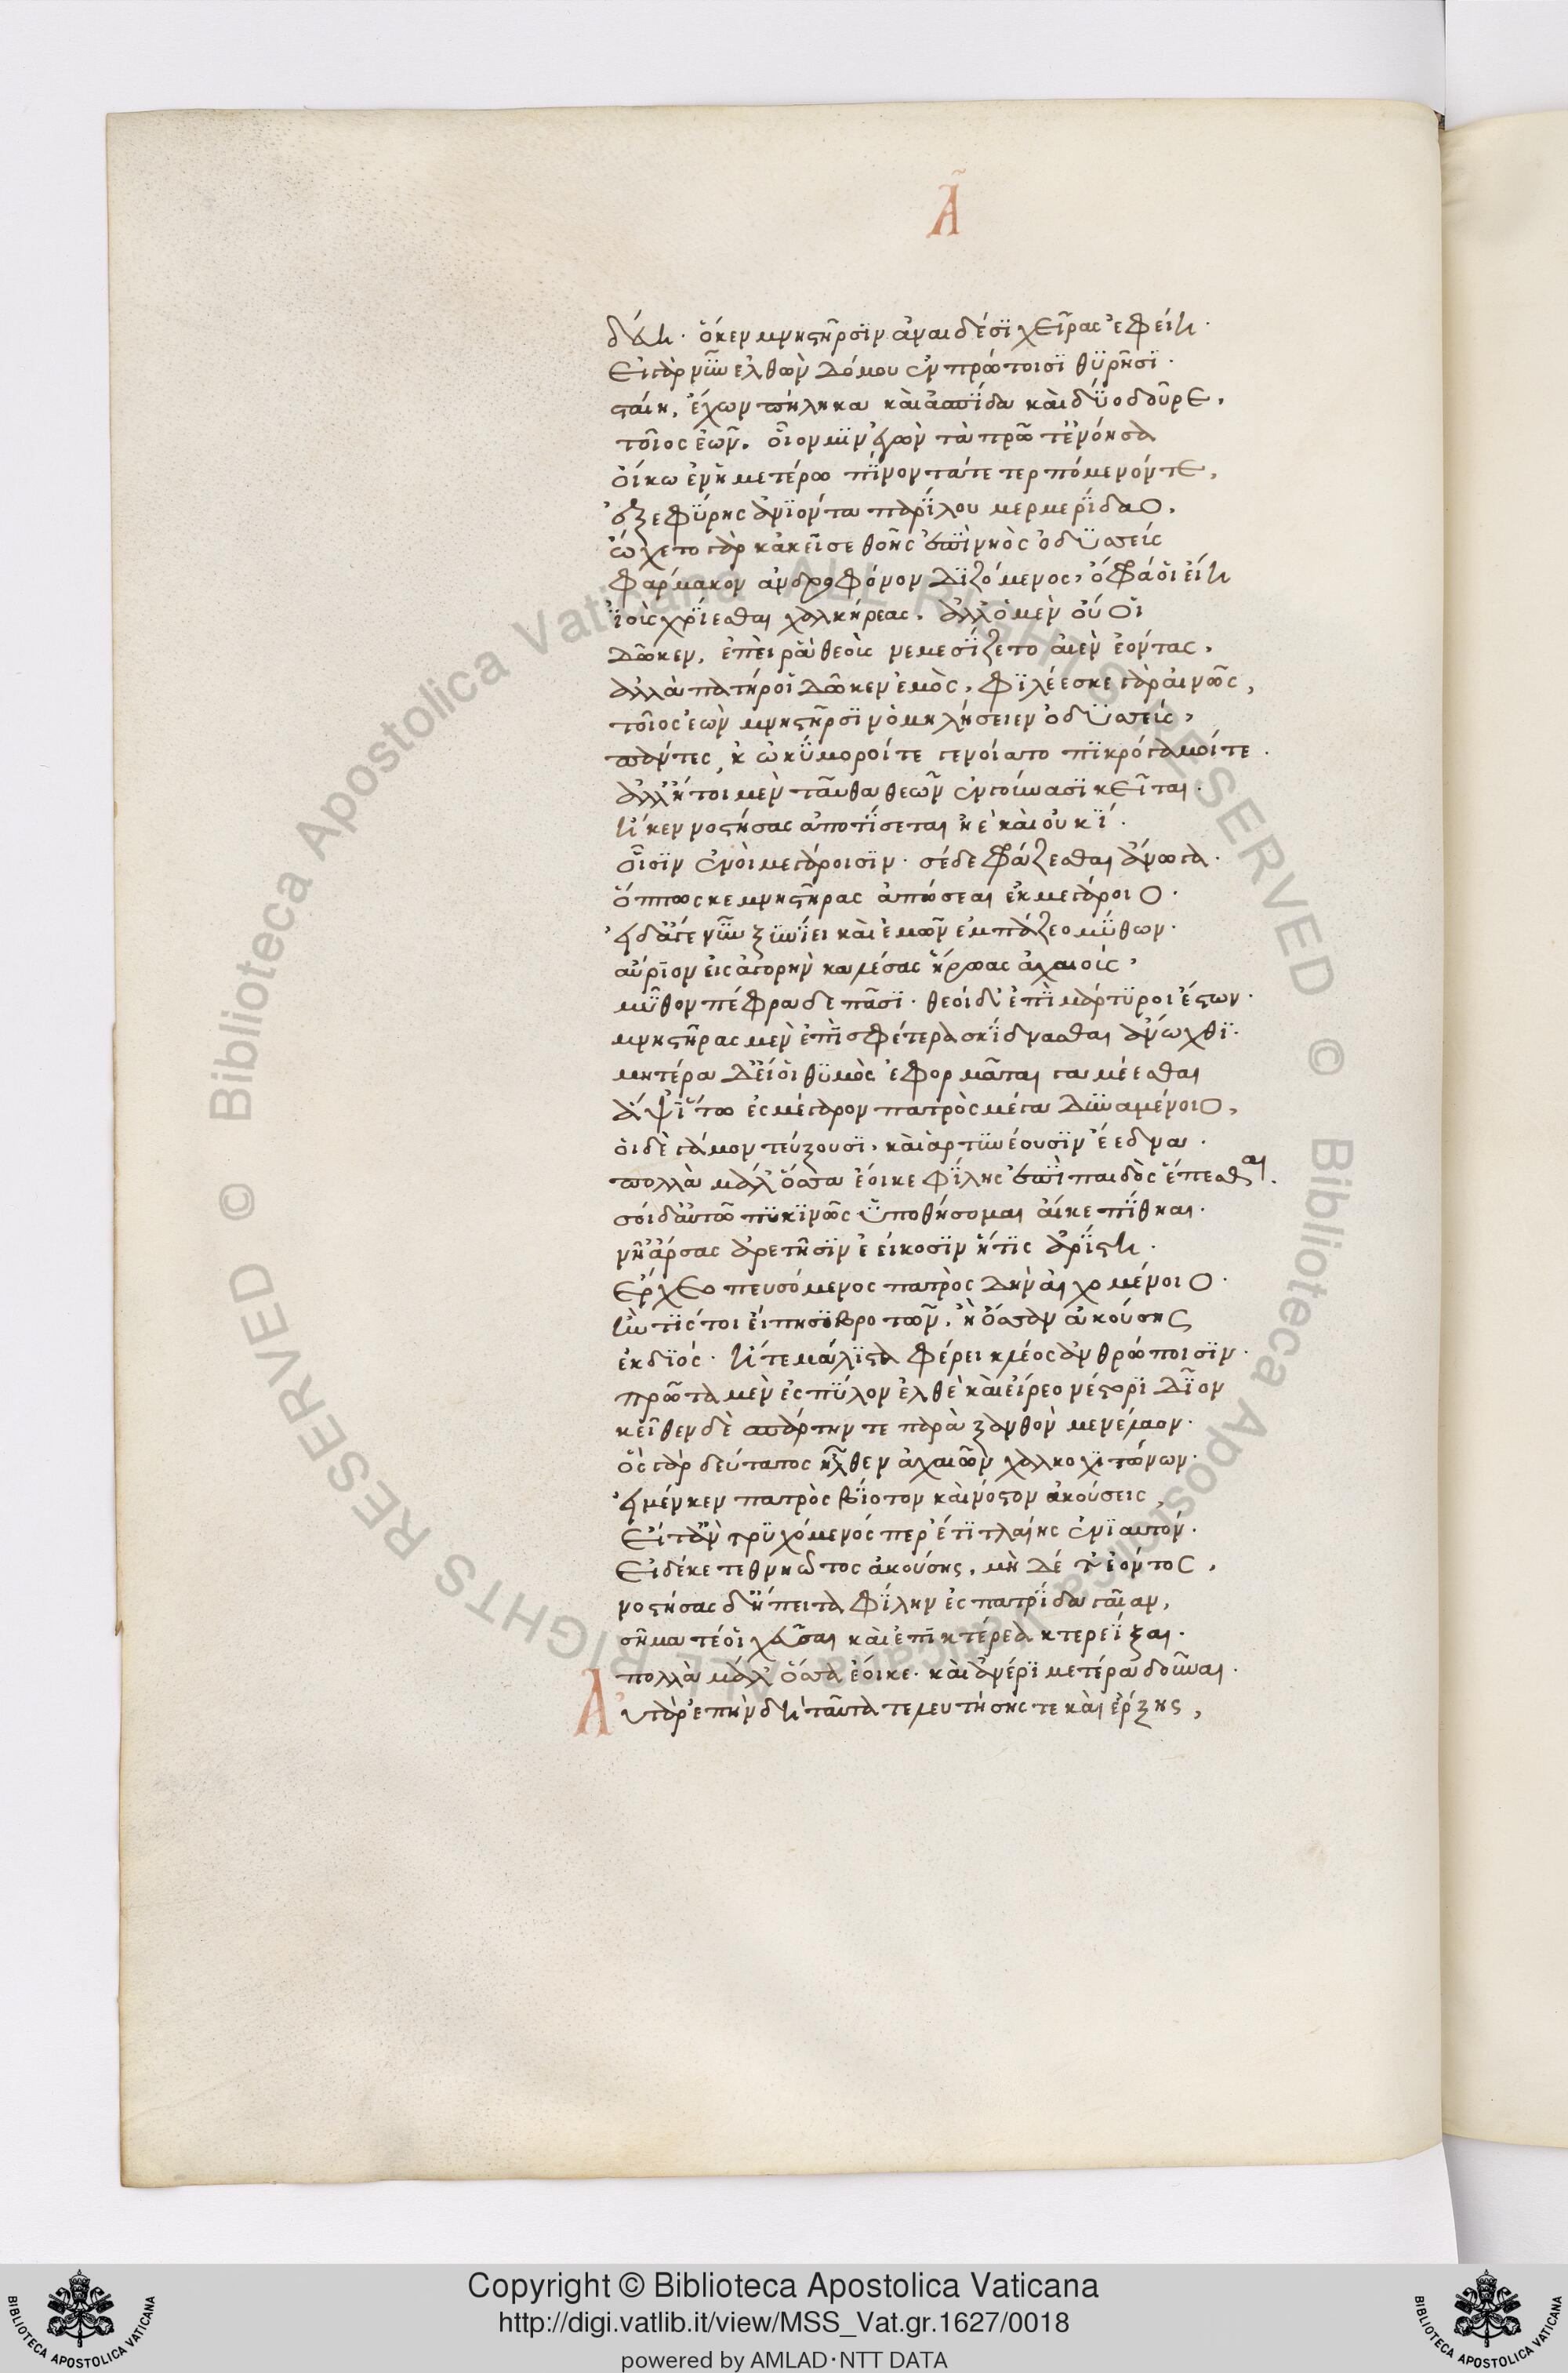 Α
δεύῃ. ὅ κεν μνηστῆρσϊν ἀναιδέσϊ χεῖρας ἐφείη.
εἰ γὰρ νῦν ἐλθὼν δόμου ἐν πρώτοισϊ θύρῃσϊ.
σταίη, ἔχων πήληκα καὶ ἀσπίδα καὶ δύο δοῦρε,
τοῖος ἐὼν, οἷον μϊν ἐγὼν τὰ πρῶτ' ἐνόησα
οἴκω ἐν ἡμετέρω πίνοντά τε τερπόμενόν τε,
ἐξ ἐφύρης ἀνϊόντα παρ' ἴλου μερμερίδαο,
ᾤχετο γὰρ κἀκεῖσε θοῆς ἐπὶ νηὸς ὀδυσσεύς
φάρμακον ἀνδροφόνον διζόμενος, ὄφρά οἱ εἴη
ἰοὺς χρίεσθαι χαλκήρεας. ἀλλ' ὁ μὲν οὔ οἱ
δῶκεν, ἐπεί ῥα θεοὺς νεμεσίζετο αἰὲν ἐόντας,
ἀλλὰ πατήρ οἱ δῶκεν ἐμὸς, φϊλέεσκε γὰρ αἰνῶς,
τοῖος ἐὼν μνηστῆρσϊν ὁμηλήσειεν ὀδυσσεύς,
πάντες κ' ὠκύμοροί τε γενοίατο πϊκρόγαμοί τε.
ἀλλ' ἤτοι μὲν ταῦτα θεῶν ἐν γούνασϊ κεῖται.
ἤ κεν νοστήσας ἀποτίσεται ἠὲ καὶ οὐκί.
οἷσϊν ἐνὶ μεγάροισϊν. σὲ δὲ φράζεσθαι ἄνωγα.
ὅππως κε μνηστῆρας ἀπώσεαι ἐκ μεγάροιο.
εἰ δ' ἄγε νῦν ξυνίει καὶ ἐμῶν ἐμπάζεο μύθων.
αὔριον εἰς ἀγορὴν καλέσας ἥρωας ἀχαιούς,
μῦθον πέφραδε πᾶσϊ. θεοὶ δ' ἐπὶ μάρτυροι ἔστων.
μνηστῆρας μὲν ἐπὶ σφέτερα σκίδνασθαι ἄνωχθϊ.
μητέρα δ' εἴ οἱ θυμὸς ἐφορμᾶται γαμέεσθαι
ἂψ ἴτω ἐς μέγαρον πατρὸς μέγα δυναμένοιο,
οἱ δὲ γάμον τεύξουσϊ, καὶ ἀρτυνέουσϊν ἔεδνα.
πολλὰ μάλ' ὅσσα ἔοικε φίλης ἐπὶ παιδὸς ἕπεσθαι.
σοὶ δ' αὐτῶ πϋκϊνῶς ὑποθήσομαι αἴ κε πίθηαι.
νῆ' ἄρσας ἐρέτῃσϊν ἐείκοσϊν ἥτϊς ἀρίστη.
ἔρχεο πευσόμενος πατρὸς δὴν οἰχομένοιο.
ἤν τϊς τοι εἴπησϊ βροτῶν, ἢ ὄσσαν ἀκούσης
ἐκ διός. ἥ τε μάλϊστα φέρει κλέος ἀνθρώποισϊν.
πρῶτα μὲν ἐς πύλον ἐλθὲ καὶ εἴρεο νέστορϊ δῖον
κεῖθεν δὲ σπάρτην τε παρὰ ξανθὸν μενέλαον.
ὃς γὰρ δεύτατος ἦλθεν ἀχαιῶν χαλκοχϊτώνων.
εἰ μέν κεν πατρὸς βίοτον καὶ νόστον ἀκούσεις,
εἴτ' ἂν τρυχόμενός περ ἔτϊ τλαίης ἐνϊαυτόν.
εἰ δέ κε τεθνηῶτος ἀκούσης, μὴ δέ τ' ἐόντος,
νοστήσας δἤπειτα φίλην ἐς πατρίδα γαῖαν,
σῆμα τέ οἱ χεῦσαι καὶ ἐπὶ κτέρεα κτερεΐξαι.
πολλὰ μάλ' ὅσσα ἔοικε. καὶ ἀνέρϊ μετέρα δοῦναι.
Αὐτὰρ ἐπὴν δὴ ταῦτα τελευτήσῃς τε καὶ ἔρξῃς,
© Biblioteca Apostolica Vaticana ALL RIGHTS RESERVED © Biblioteca Apostolica Vaticana ALL RIGHTS RESERVED
Copyright © Biblioteca Apostolica Vaticana
http://digi.vatlib.it/view/MSS_Vat.gr.1627/0018
powered by AMLAD·NTT DATA
BIBLIOTECA APOSTOLICA VATICANA
BIBLIOTECA APOSTOLICA VATICANA